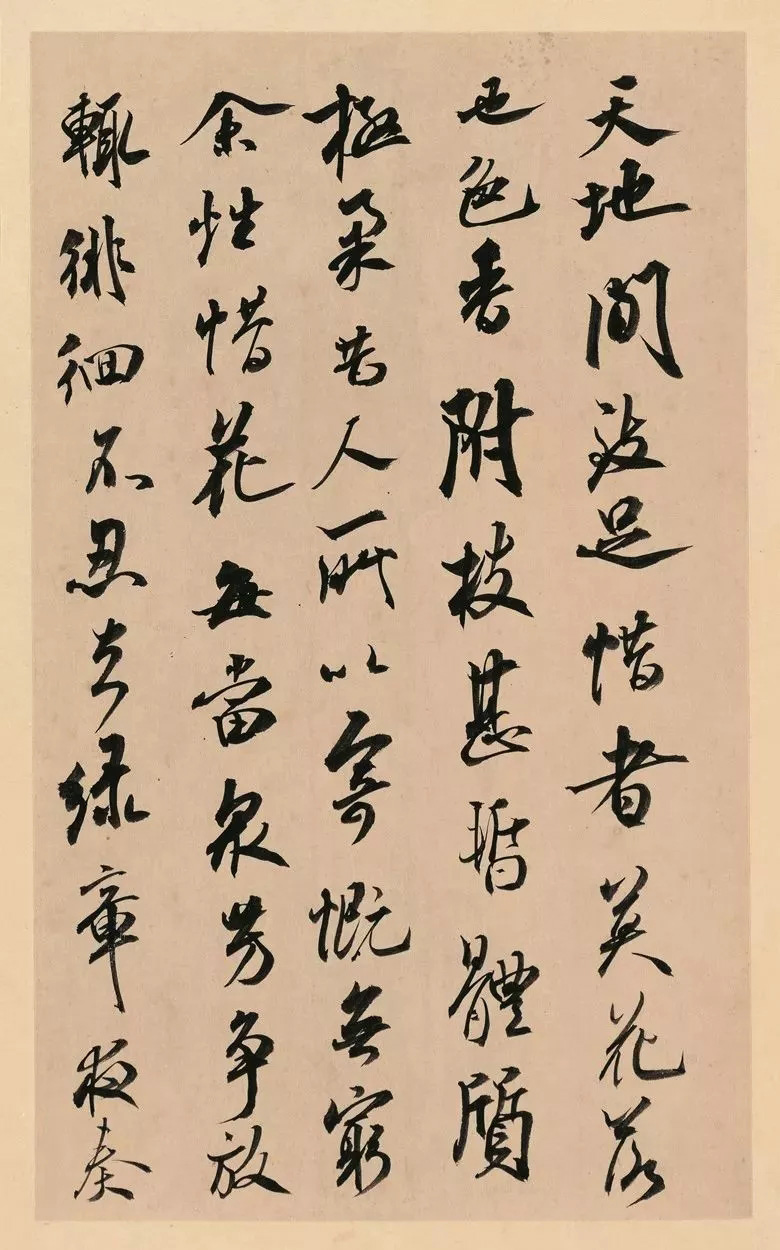 天地間致足惜者莫花若
也色香附枝甚暫體質
極柔昔人所以寄慨無窮
余性惜花每當衆芳争放
輒徘徊不忍去緑章夜奏